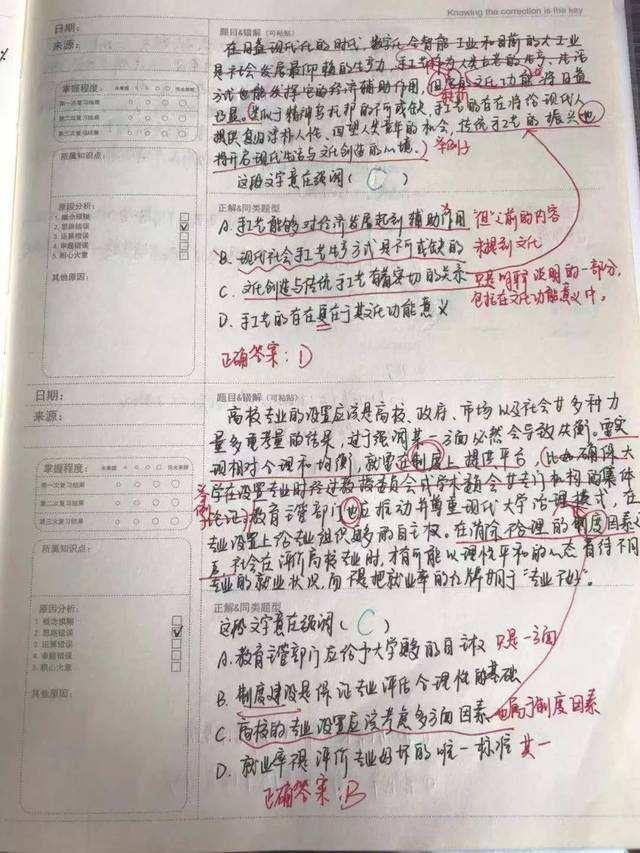 Knowing the correction is the key
日期:
来源:
掌握程度:
未掌握
完全掌握
第一次复习结果
第二次复习结果
第三次复习结果
所属知识点:
原因分析:
1. 概念模糊
2. 思路错误
3. 运算错误
4. 审题错误
5. 粗心大意
其他原因:
题目&错解(可粘贴)
在日益现代化的时代,数字化合智能工业和目前的大工业
是社会发展最仰赖的生产力,手工艺作为人类古老的生产、生活
方式也能发挥一定的经济辅助作用,但它的文化功能将日益
凸显。类似于精神乌托邦的不可或缺,手工艺的存在将给现代人
提供复归淳朴人性、回望人类童年的机会,传统手工艺的振兴也
将开启现代生活与文化创造的心境。
举例子
这段文字意在强调( C )
正解&同类题型
A. 手工艺能够对经济发展起到辅助作用
但之前的内容
B. 现代社会手工艺生产方式是不可或缺的
未提到文化
C. 文化创造与传统手工艺有着密切的关系
只是解释说明的一部分,
包括在文化功能意义中。
D. 手工艺的存在真在于其文化功能意义
正确答案:D
日期:
来源:
掌握程度:
未掌握
完全掌握
第一次复习结果
第二次复习结果
第三次复习结果
所属知识点:
原因分析:
1. 概念模糊
2. 思路错误
3. 运算错误
4. 审题错误
5. 粗心大意
其他原因:
题目&错解(可粘贴)
高校专业的设置应该是高校、政府、市场以及社会等多种力
量多重考量的结果,过于强调某一方面必然会导致失衡。要实
现相对合理和均衡,就需在制度上提供平台,比如确保大
学在设置专业时经过教授委员会或学术委员会等专门机构的集体
论证;教育主管部门也应推动并尊重现代大学治理模式,在
专业设置上给专业组织足够的自主权。在消除不合理的制度因素之
后,社会在评价高校专业时,才有可能以理性平和的心态看待不同
专业的就业状况,而不是把就业率的大牌用于“专业不好”。
举例
正解&同类题型
这段文字意在强调( C )
A. 教育主管部门应给予大学足够的自主权
只是一方面
B. 制度建设是保证专业评估合理性的基础
C. 高校的专业设置应该考虑多方面因素
也属于制度因素
D. 就业率是评价专业好坏的唯一标准
其一
正确答案:B